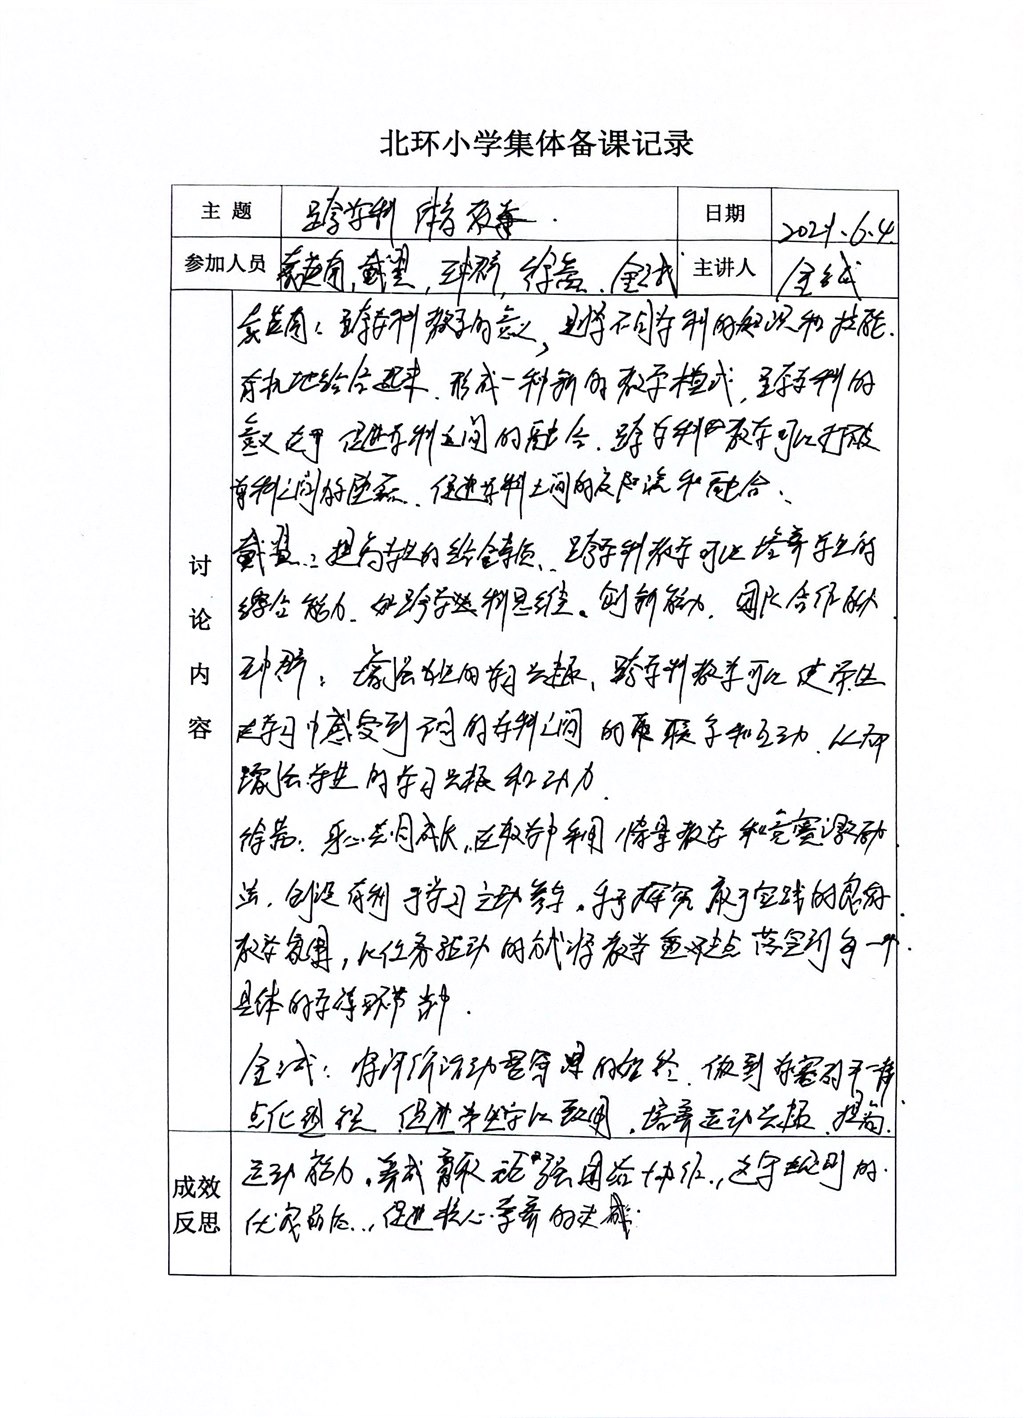 北环小学集体备课记录
主 题 跨学科 体育教学.
日期 2024.6.4
参加人员 袁芝南, 戴望, 徐蕊. 金斌 主讲人 金斌
讨论内容
袁芝南:跨学科教学的意义,是将不同学科的知识和技能.
有机地结合起来.形成一种新的教学模式,跨学科的
意义在于 促进学科之间的融合.跨学科的教学可以打破
学科之间的壁垒.促进学科之间的交流和融合、
戴望:提高学生的综合素质、跨学科教学可以培养学生的
综合能力.如跨学科思维。创新能力.团队合作能力
增强学生的学习兴趣、跨学科教学可以使学生
在学习中感受到不同的学科之间的联系和互动.从而
增强学生的学习兴趣和动力.
徐蕊:身心共同成长,在教学中利用情景教学和竞赛激励
法.创设有利于学习主动参与。乐于探究 敢于实践的良好
教学氛围,以任务驱动的方式将教学重难点落实到每一个
具体的学练环节当中.
金斌:将评价活动贯穿课的始终.做到
促进学生学以致用.培养运动兴趣.提高.
成效反思
运动能力。养成 团结协作.,遵守规则的.
优良品德..,促进核心素养的达成.